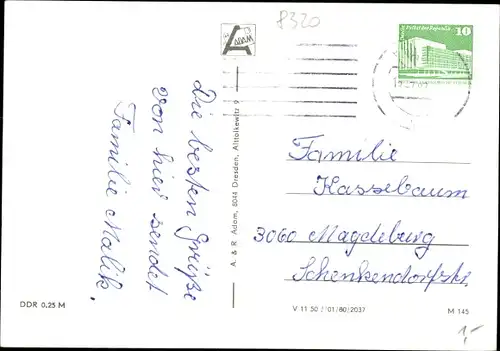 8320
ADAM
Berlin, Palast der Republik
10
Die besten Grüße
von hier sendet
Familie Malik.
A. & R. Adam, 8044 Dresden, Alttolkewitz 9
Familie
Kassebaum
3060 Magdeburg
Schenkendorfstr.
DDR 0,25 M
V 11 50 / 01/80/2037
M 145
1,-